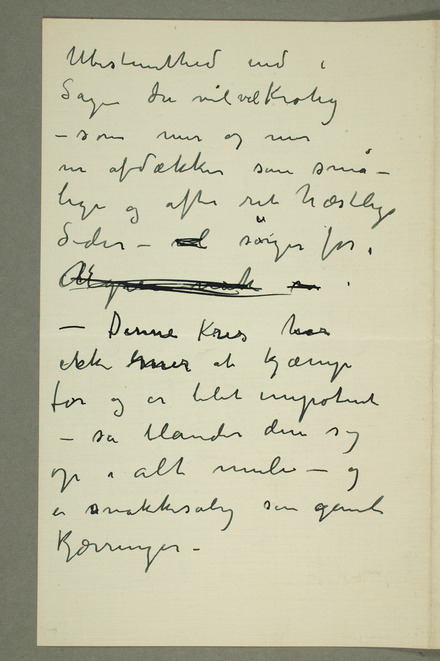 Ubestemthed ind i
Sagen du vil vel Krohg
– som mer og mer
nu afdækker sine små–
lige og ofte ret hæslige
Sider – sörger for,
– Denne Kres har
ikke mer at kjæmpe
for og er blet impotent
– så blander den sig
op i alt muli – og
er snakkesalig som gamle
Kjærringer –